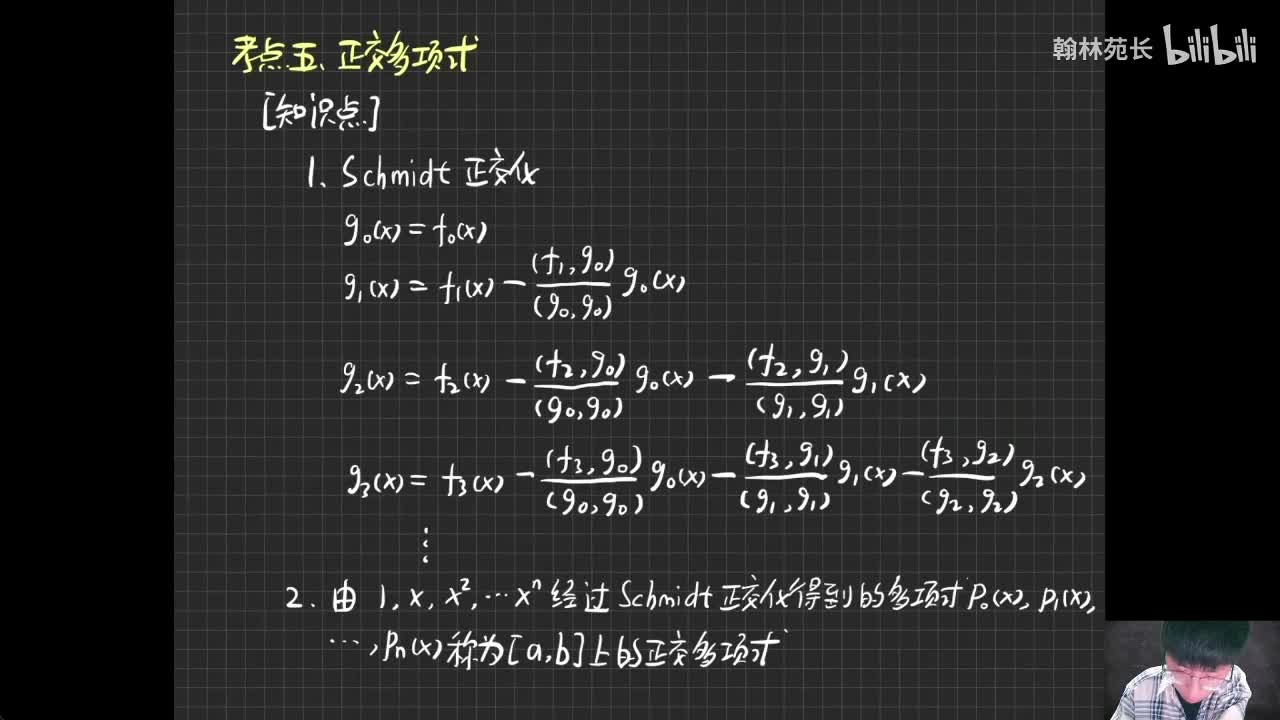 翰林苑长 bilibili
考点五、正交多项式
[知识点]
1. Schmidt 正交化
g₀(x) = f₀(x)
g₁(x) = f₁(x) − (f₁, g₀)/(g₀, g₀) g₀(x)
g₂(x) = f₂(x) − (f₂, g₀)/(g₀, g₀) g₀(x) − (f₂, g₁)/(g₁, g₁) g₁(x)
g₃(x) = f₃(x) − (f₃, g₀)/(g₀, g₀) g₀(x) − (f₃, g₁)/(g₁, g₁) g₁(x) − (f₃, g₂)/(g₂, g₂) g₂(x)
⋮
2. 由 1, x, x², ⋯ xⁿ 经过 Schmidt 正交化得到的多项式 P₀(x), P₁(x),
⋯, Pₙ(x) 称为 [a, b] 上的正交多项式